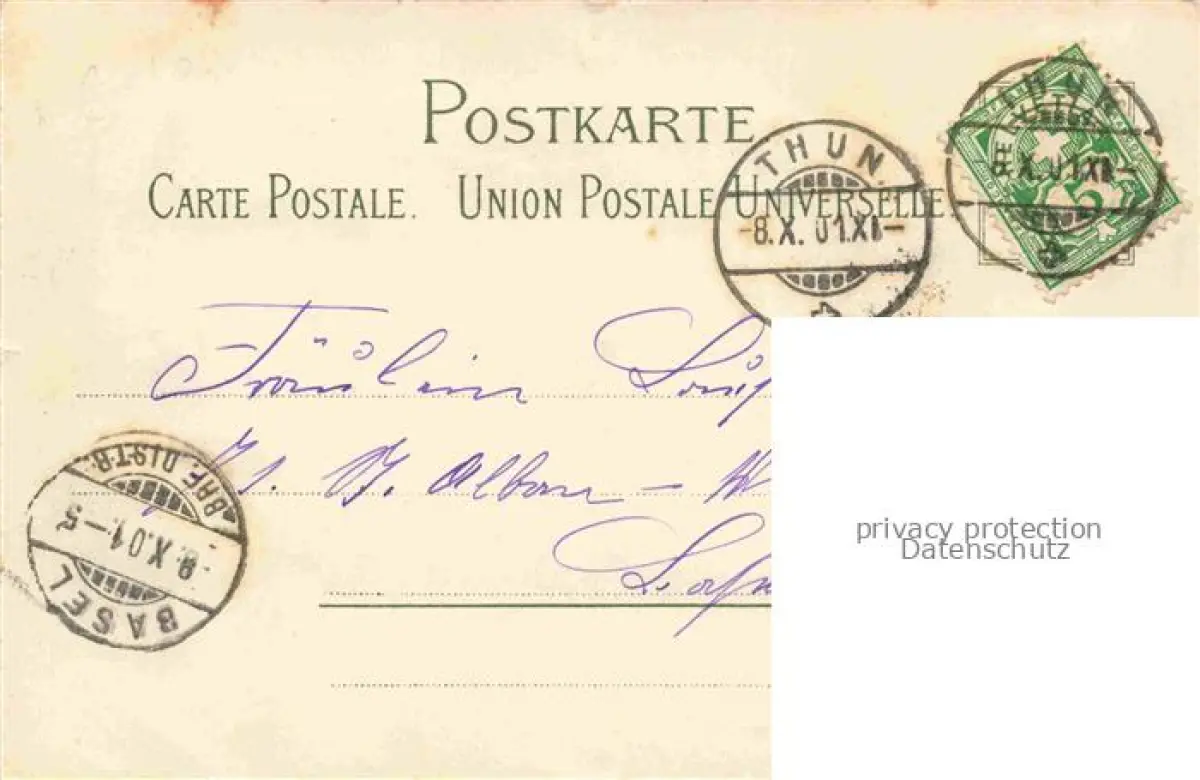 POSTKARTE
CARTE POSTALE. UNION POSTALE UNIVERSELLE
THUN.
-8.X.01.XI-
THUN
8.X.01.XI-
5
Fräulein
Alban –
BASEL
8.X.01.-5
BRF. DISTR.
privacy protection
Datenschutz